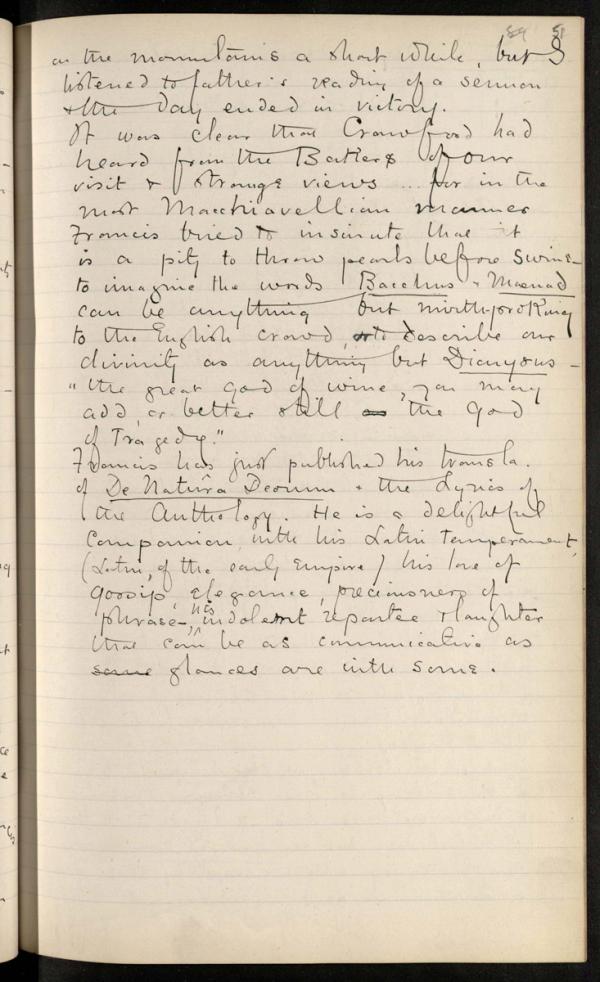 51
on the mountains a short while, but I
listened to father's reading of a sermon
& the Day ended in victory.
It was clear that Crawford had
heard from the Bakers of our
visit & strange views ... for in the
most Macchiavellian manner
Francis tried to insinute that it
is a pity to throw pearls before swine –
to imagine the words Bacchus & Maenad
can be anything but mirth-provoking
to the English crowd, describe our
divinity as anything but Dionysus –
"the great god of wine, you may
add, or better still the God
of Tragedy."
Francis has just published his transla.
of De Naturâ Deorum & the Lyrics of
the Anthology. He is a delightful
Companion, with his Latin Temperament,
(Latin, of the early Empire) his love of
gossip, elegance, preciousness of
phrase –, his indolent repartee & laughter
that can be as communicative as
some glances are with some.